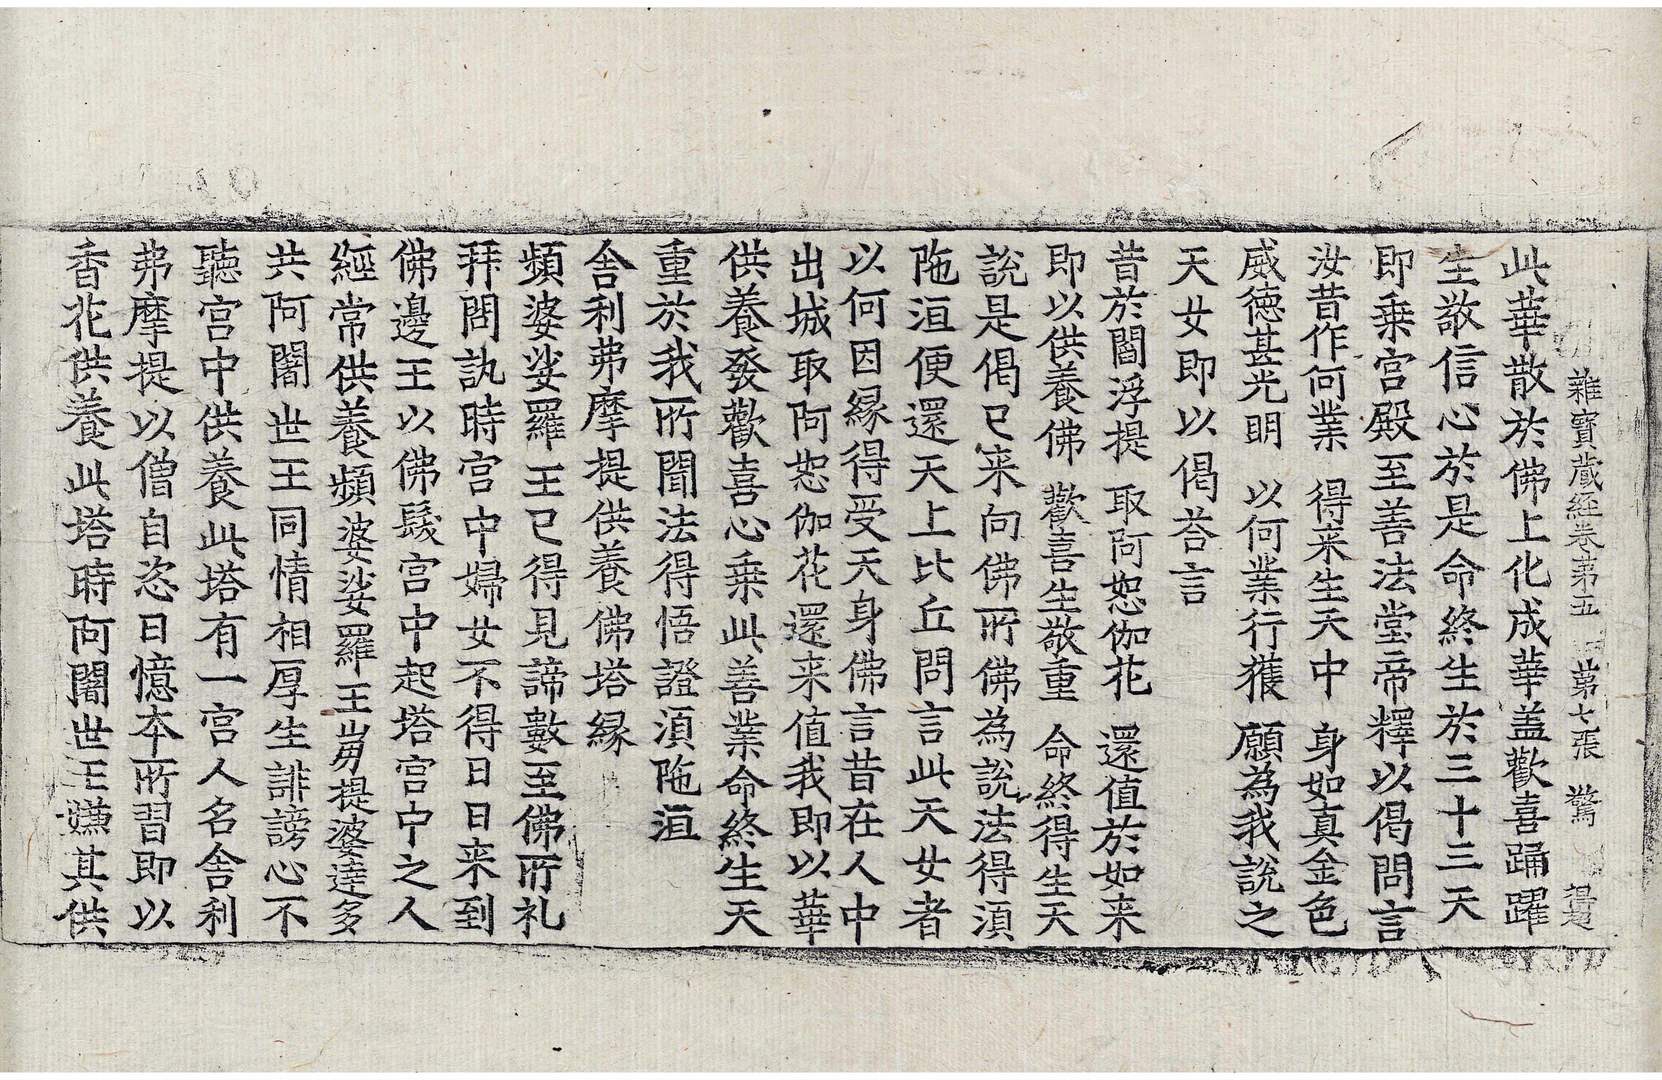 雜寶藏經卷第五 第七張 驚 得超
此華散於佛上化成華盖歡喜踊躍
生敬信心於是命終生於三十三天
即乗宫殿至善法堂帝釋以偈問言
汝昔作何業 得来生天中 身如真金色
威德甚光明 以何業行獲 願為我說之
天女即以偈荅言
昔於閻浮提 取阿恕伽花 還值於如来
即以供養佛 歡喜生敬重 命終得生天
說是偈已来向佛所佛為說法得湏
陁洹便還天上比丘問言此天女者
以何因縁得受天身佛言昔在人中
出城取阿恕伽花還来值我即以華
供養發歡喜心乗此善業命終生天
重於我所聞法得悟證湏陁洹
舎利弗摩提供養佛塔縁
頻婆娑羅王已得見諦數至佛所礼
拜問訊時宫中婦女不得日日来到
佛邊王以佛髮宫中起塔宫中之人
經常供養頻婆娑羅王崩提婆達多
共阿闍世王同情相厚生誹謗心不
聽宫中供養此塔有一宫人名舎利
弗摩提以僧自恣日憶本所習即以
香花供養此塔時阿闍世王嫌其供